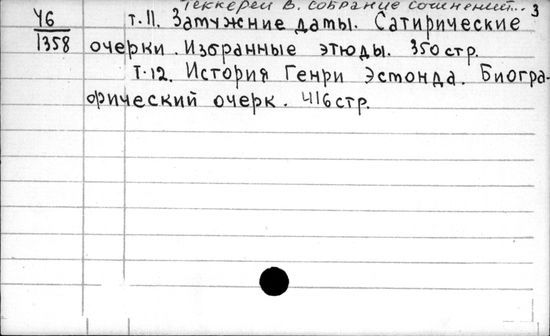 Теккерей В. Собрание сочинений... 3
У6
1358
т.11. Замужние даты. Сатирические
очерки. Избранные этюды. 350стр.
Т.12. История Генри Эстонда. Биогра-
фический очерк. 416стр.